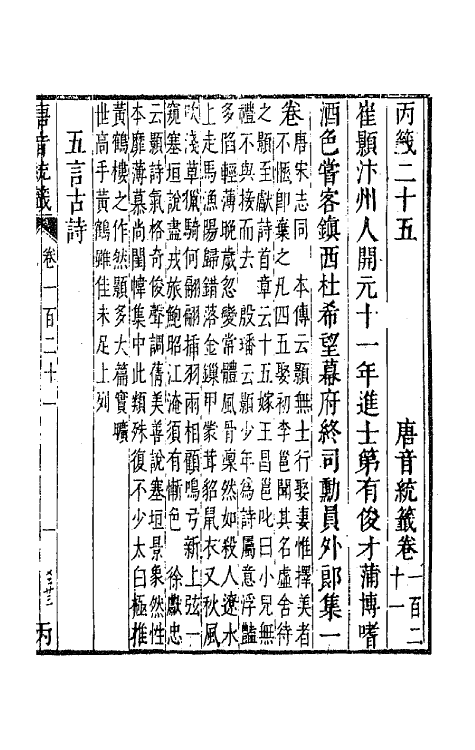 丙籤二十五
唐音統籤卷一百二十一
崔顥汴州人開元十一年進士第有俊才蒲博嗜
酒色嘗客鎮西杜希望幕府終司勳員外郎集一
卷
唐宋志同　本傳云顥無士行娶妻惟擇美者
不愜即棄之凡四五娶初李邕聞其名虛舍待
之顥至獻詩首章云十五嫁王昌邕叱曰小兒無
禮不與接而去　殷璠云顥少年為詩屬意浮豔
多陷輕薄晚歲忽變常體風骨凛然如殺人遼水
上走馬漁陽歸錯落金鏁甲蒙茸貂鼠衣又秋風
吹淺草獵騎何翩翩插羽兩相顧鳴弓新上弦一
窺塞垣說盡戎旅鮑昭江淹須有慚色　徐獻忠
云顥詩氣格奇俊聲調蒨美善說塞垣景象然性
本靡薄慕尚閨幃集中此類殊復不少太白極推
黃鶴樓之作然顥多大篇實曠
世高手黃鶴雖佳未足上列
五言古詩
唐音統籤
卷一百二十一
一
丙